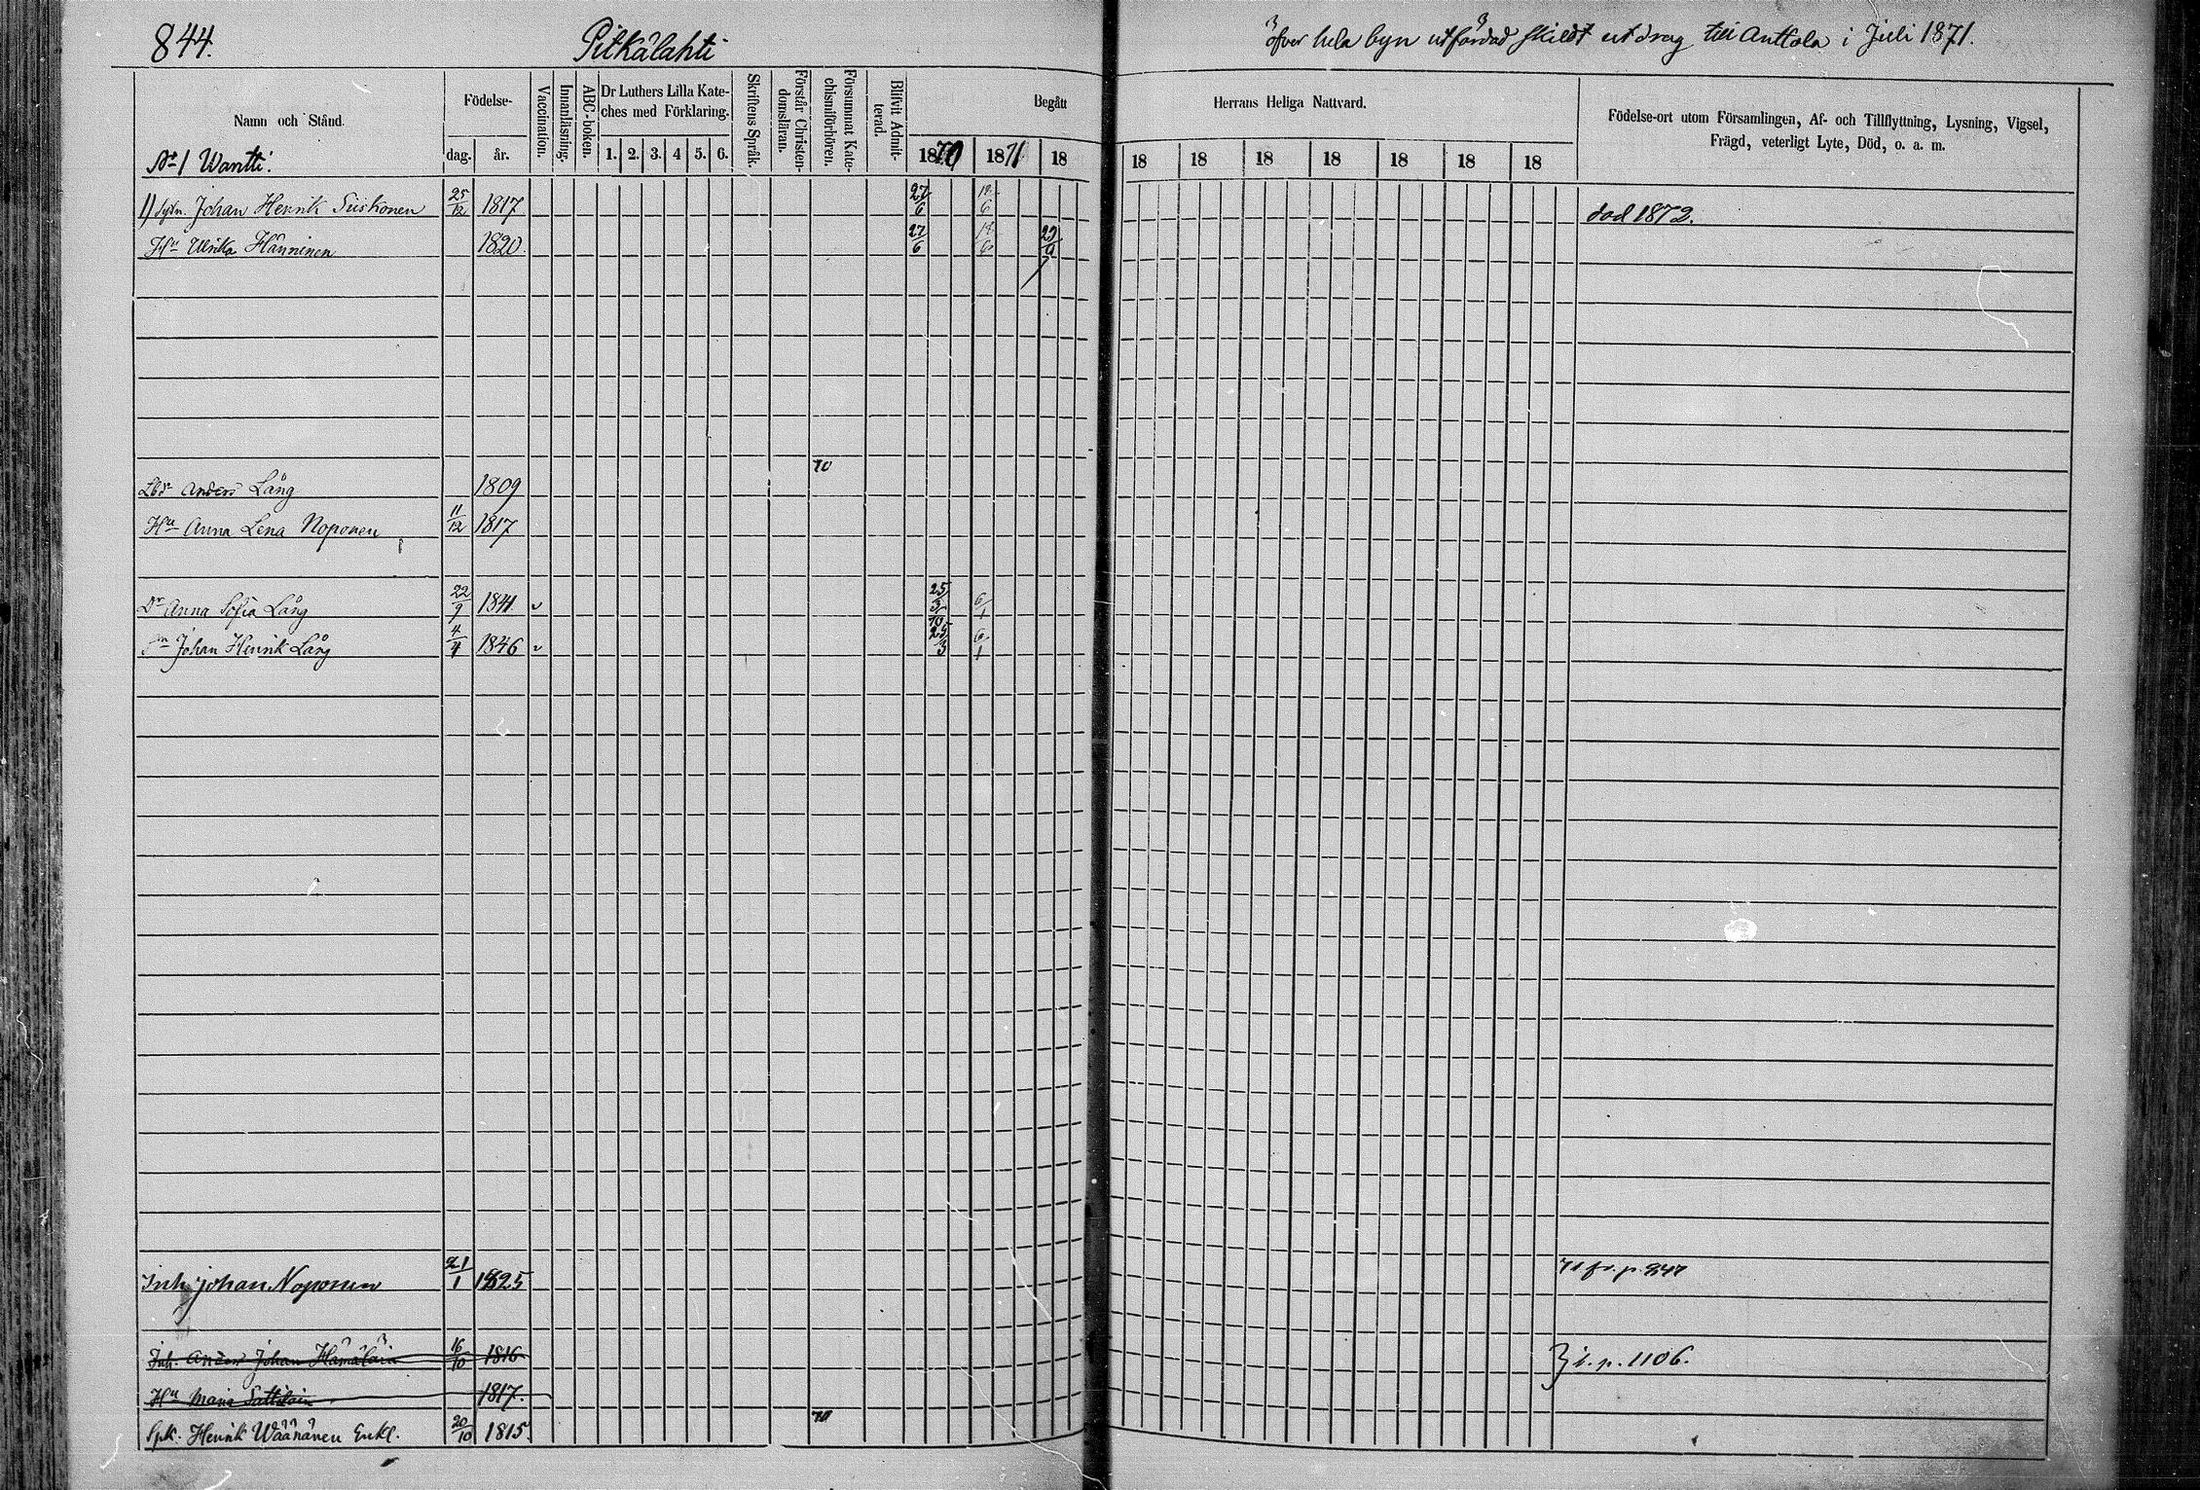 844.
Pitkälahti
öfver hela byn utfärdad skildt utdrag till Anttola i Juli 1871.
Namn och Stånd.
Födelse-
dag. år.
Vaccination.
Innanläsning.
ABC-boken.
Dr Luthers Lilla Kate-
ches med Förklaring.
1. 2. 3. 4 5. 6.
Skriftens Språk.
Förstår Christen-
domsläran.
Försummat Kate-
chismiförhören.
Blifvit Admit-
terad.
Begått
Herrans Heliga Nattvard.
1870 1871 18 18 18 18 18 18 18 18
Födelse-ort utom Församlingen, Af- och Tillflyttning, Lysning, Vigsel,
Frägd, veterligt Lyte, Död, o. a. m.
No 1 Wantti.
1) Johan Henrik Siiskonen 25/12 1817 27/6 18/6 död 1872.
Hu Ulrika Hänninen 1820 27/6 18/6
70
Anders Lång 1809
Hu Anna Lena Noponen 11/12 1817
Dr Anna Sofia Lång 22/9 1841 v 25/3 6/1
Johan Henrik Lång 4/4 1846 v 25/3 6/1
Inh Johan Noponen 21/1 1825
Inh. Anders Johan Hämäläin 16/10 1816 i. p. 1106.
Hu Maria 1817.
70
Henrik Wäänänen Enkl. 20/10 1815.